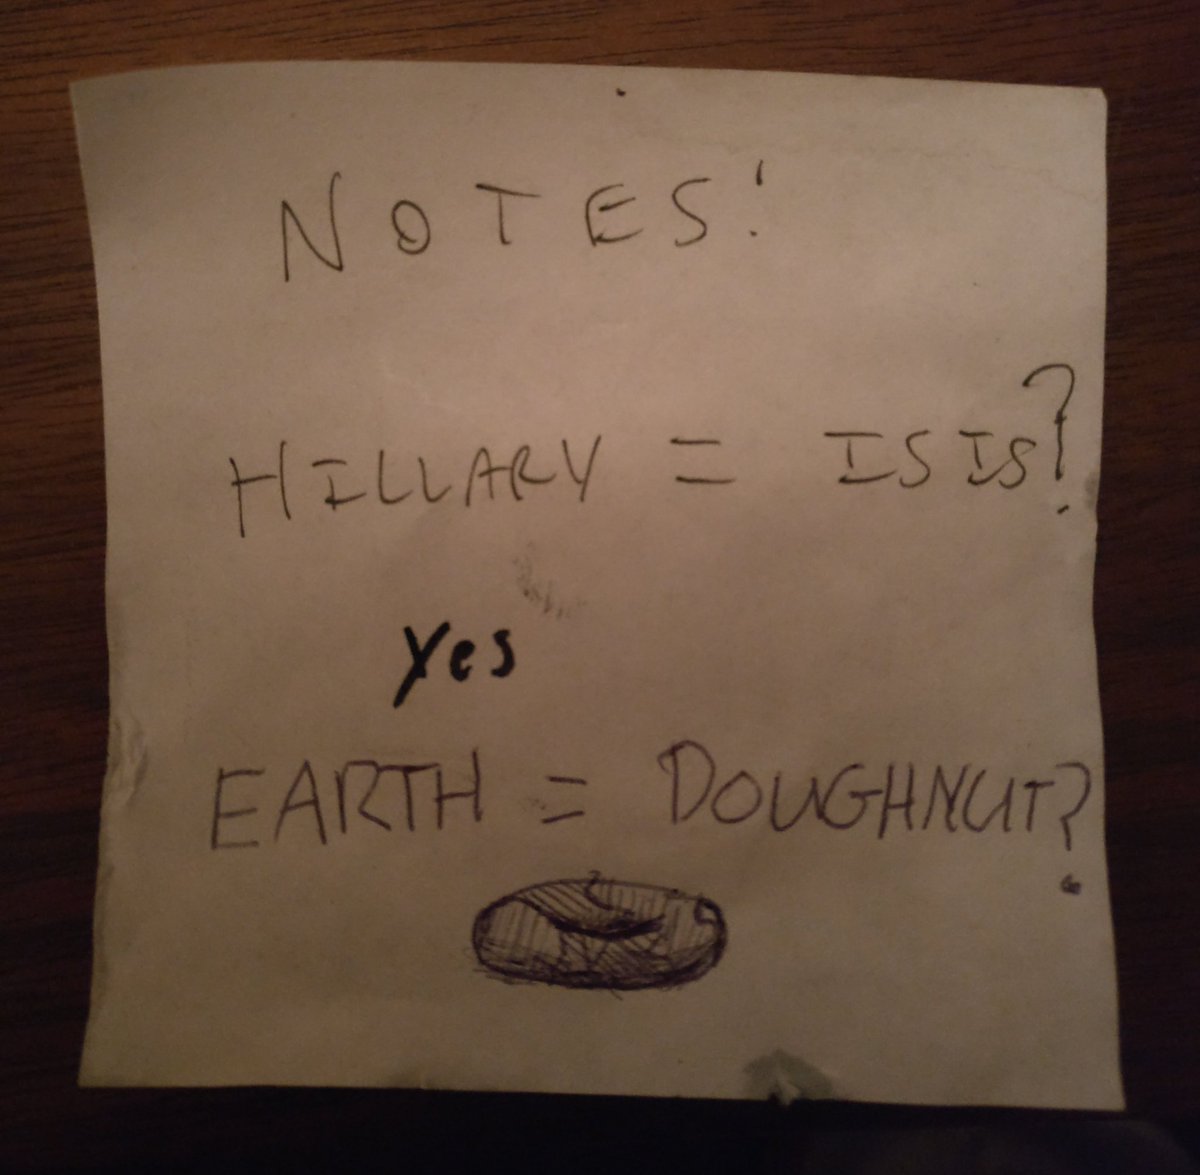 NOTES!
HILLARY = ISIS?
Yes
EARTH = DOUGHNUT?